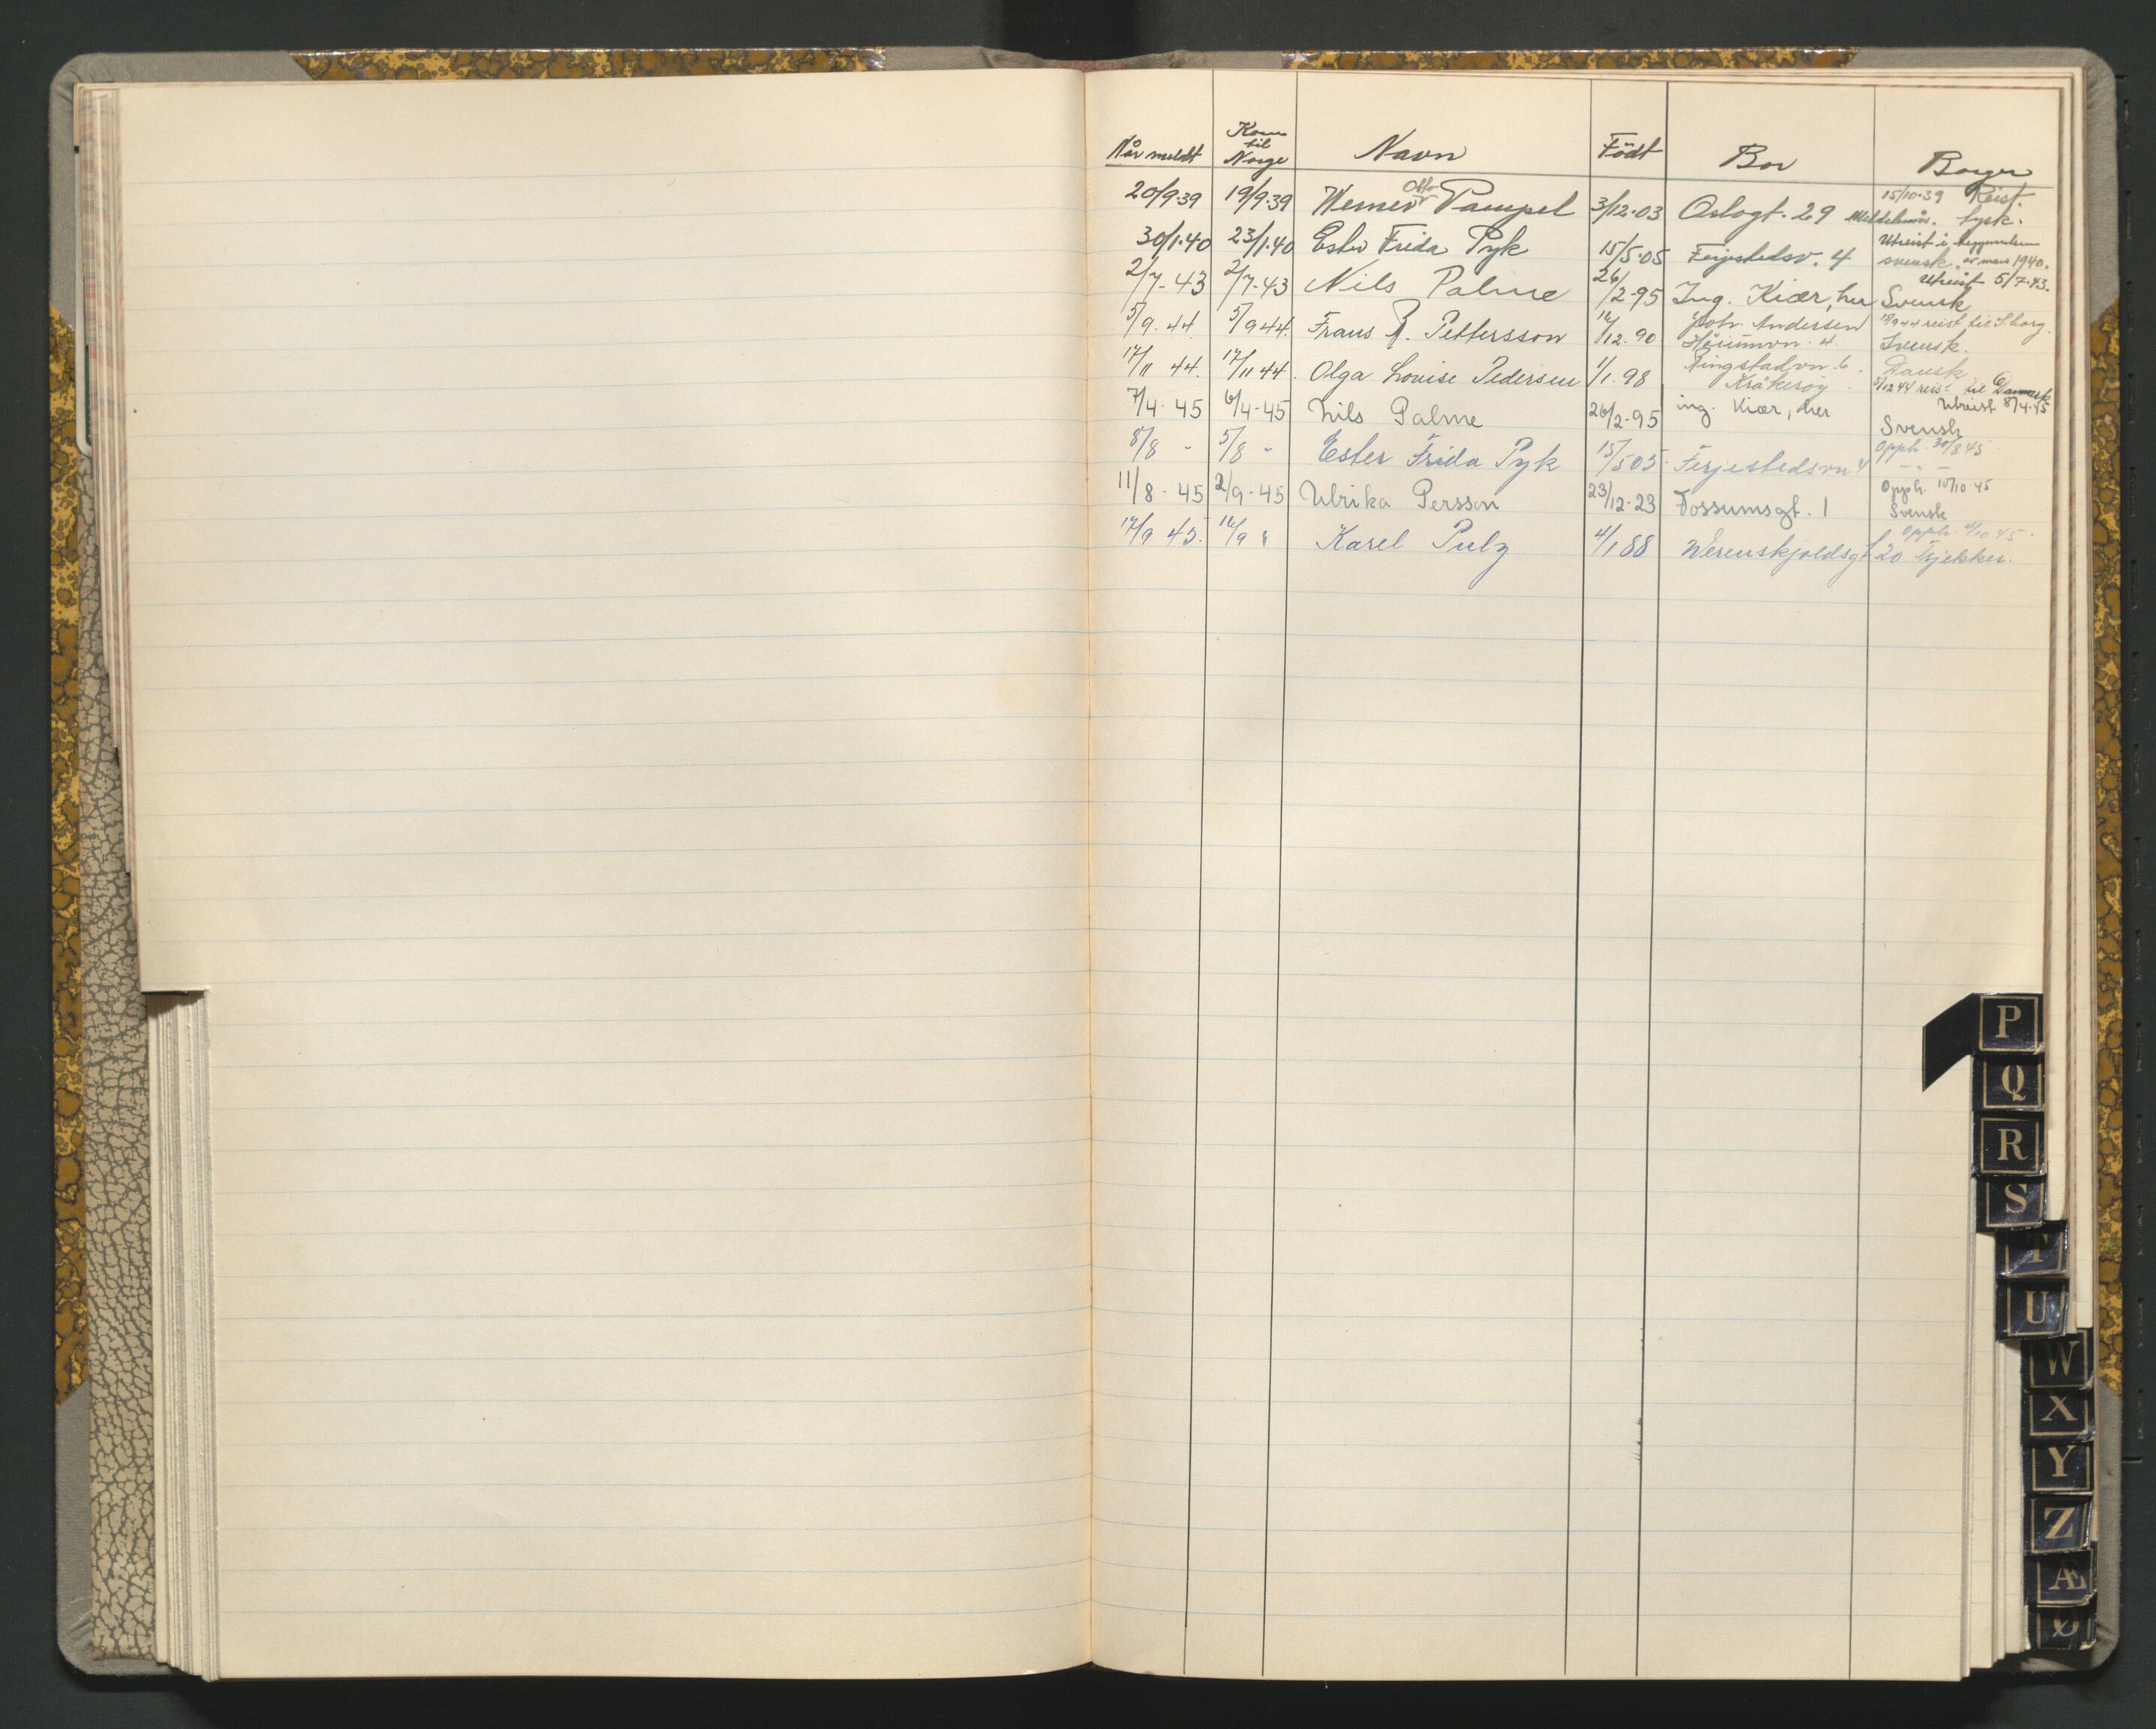 Når meldt Kom til Norge Navn Födt Bor Borger
15/10-39 Reist.
20/9-39 19/9-39 Werner Otto Pampel 3/12-03 Oslogt. 29 tysk.
Utreist i
30/1-40 23/1-40 Ester Frida Pyk 15/5-05 Ferjestedsv. 4 svensk. av mars 1940.
Utreist 5/7-43.
2/7-43 2/7-43 Nils Palme 26/2-95 Ing. Kiær, her Svensk
Joh. Andersen reist til S.borg.
5/9.44 5/9 44. Frans R. Pettersson 12.90 4. Svensk.
Ringstadvn. 6. Dansk
17/11 44. 17/11 44. Olga Lovise Pedersen 1/1.98 Kråkerøy. 5/12 44 reist til Danmark
Utreist 8/4-45
7/4-45 6/4-45 Nils Palme 26/2-95 ing. Kiær, her Svensk
Opph. 30/8 45
8/8 - 5/8 - Ester Frida Pyk 15/5 05. Ferjestedsvn 4 — " —
Opph. 10/10 45
11/8-45 2/9-45 Ulrika Persson 23/12-23 Fossumsgt. 1 Svensk
Opph. 4/10 45.
17/9 45. 14/9 " Karel Pulz 4/1 88 Werenskjoldsgt 20 Tsjekker.
P
Q
R
S
T
U
W
X
Y
Z
Æ
Ø